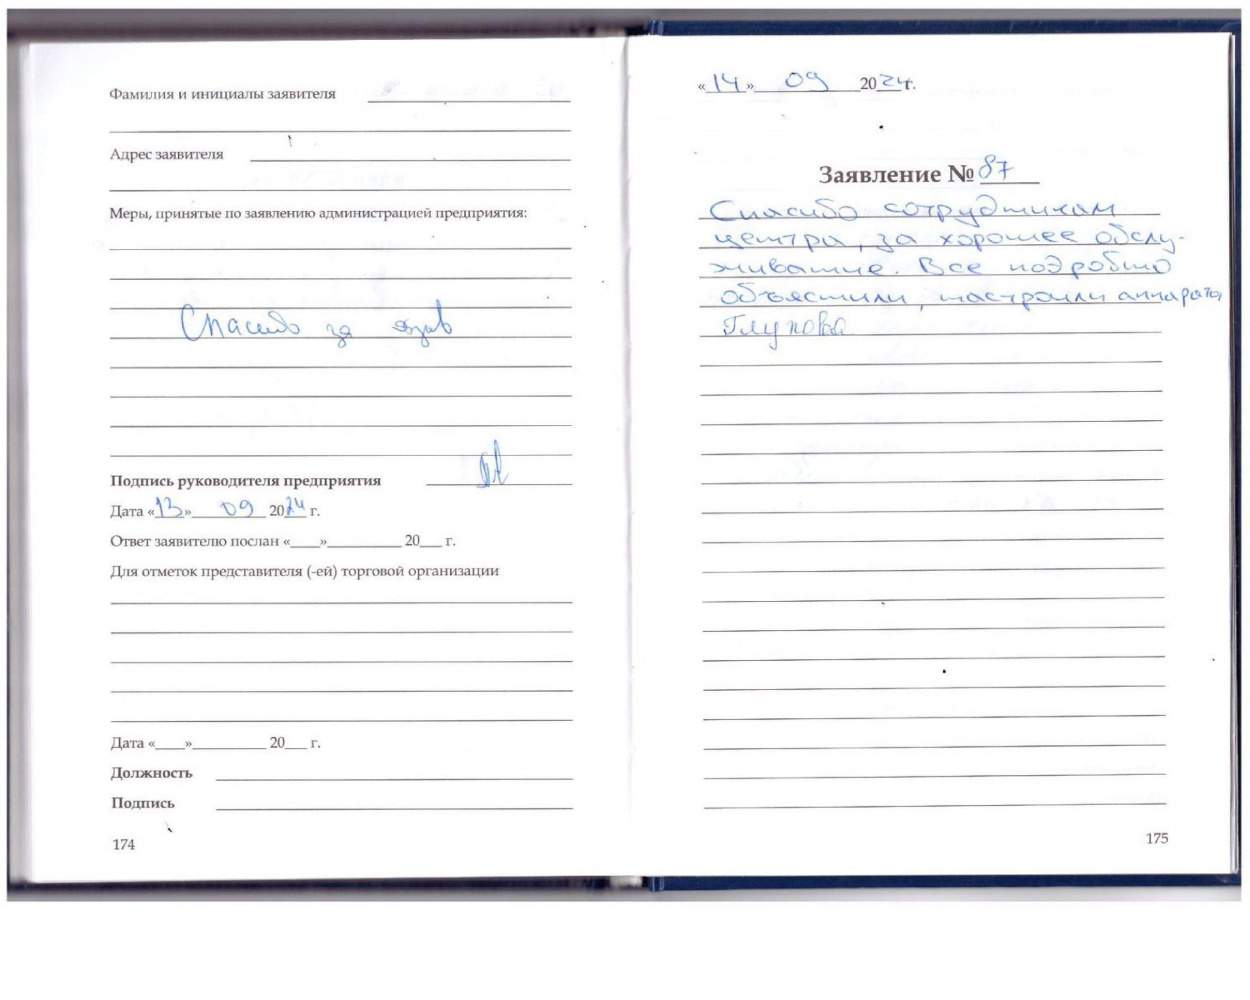 Фамилия и инициалы заявителя
Адрес заявителя
Меры, принятые по заявлению администрацией предприятия:
Спасибо за отзыв
Подпись руководителя предприятия
Дата «13» 09 2024 г.
Ответ заявителю послан «___»__________ 20___ г.
Для отметок представителя (-ей) торговой организации
Дата «____»__________ 20___ г.
Должность
Подпись
174
«14» 09 2024 г.
Заявление № 87
Спасибо сотрудникам
центра, за хорошее обслу-
живание. Все подробно
объяснили, настроили аппараты
Глупова
175